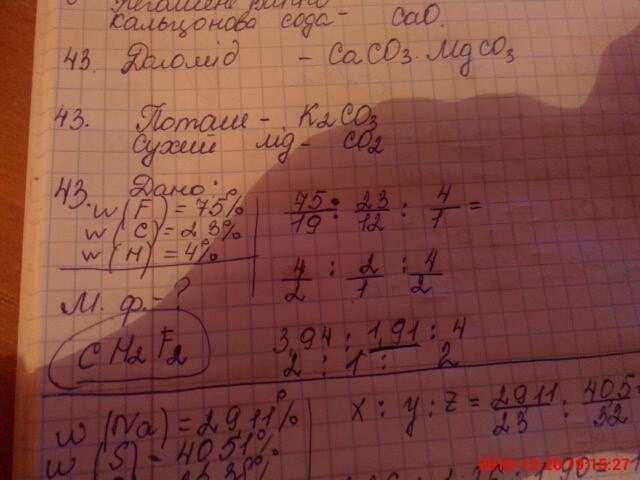 Кальцонова сода - CaO.
43. Даломід - CaCO3 · MgCO3
43. Поташ - K2CO3
Сухий лід - CO2
43. Дано:
w(F) = 75%
w(C) = 23%
w(H) = 4%
75/19 : 23/12 : 4/1 =
4/2 : 2/1 : 4/2
М. ф. - ?
3,94 : 1,91 : 4
2 : 1 : 2
CH2F2
w(Na) = 2911%
w(S) = 4051%
x : y : z = 2911/23 : 405/32
19:15:27